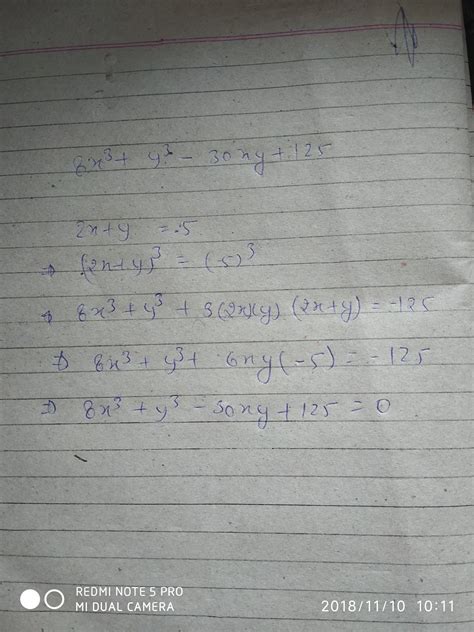 8x³ + y³ - 30xy + 125
2x+y = -5
⇒ (2x+y)³ = (-5)³
⇒ 8x³ + y³ + 3(2x)(y) (2x+y) = -125
⇒ 8x³ + y³ + 6xy(-5) = -125
⇒ 8x³ + y³ - 30xy + 125 = 0
REDMI NOTE 5 PRO
MI DUAL CAMERA
2018/11/10 10:11